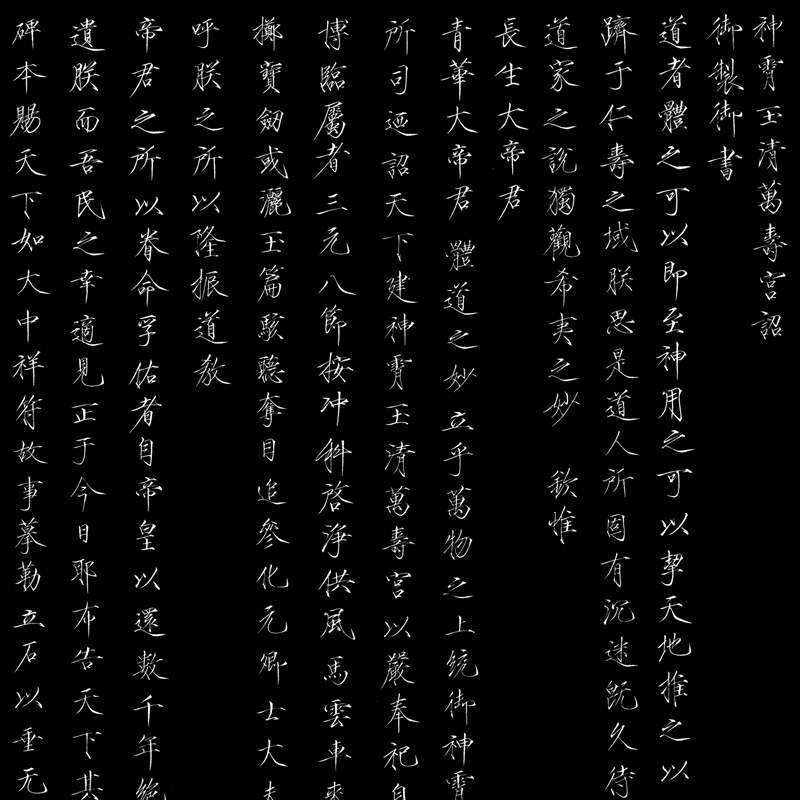 神霄玉清萬壽宮詔
御製御書
道者體之可以即至神用之可以挈天地推之以
躋于仁壽之域朕思是道人所固有沉迷既久待
道家之說獨觀希夷之妙 欽惟
長生大帝君
青華大帝君 體道之妙立乎萬物之上統御神霄
所司迺詔天下建神霄玉清萬壽宮以嚴奉祀自
博臨屬者三元八節按冲科啓淨供風馬雲車來
擲寶劒或灑玉篇駭聽奪目追參化元卿士大夫
呼朕之所以隆振道教
帝君之所以眷命孚佑者自帝皇以還數千年絕
遺朕而吾民之幸適見正于今日耶布告天下其
碑本賜天下如大中祥符故事摹勒立石以垂无